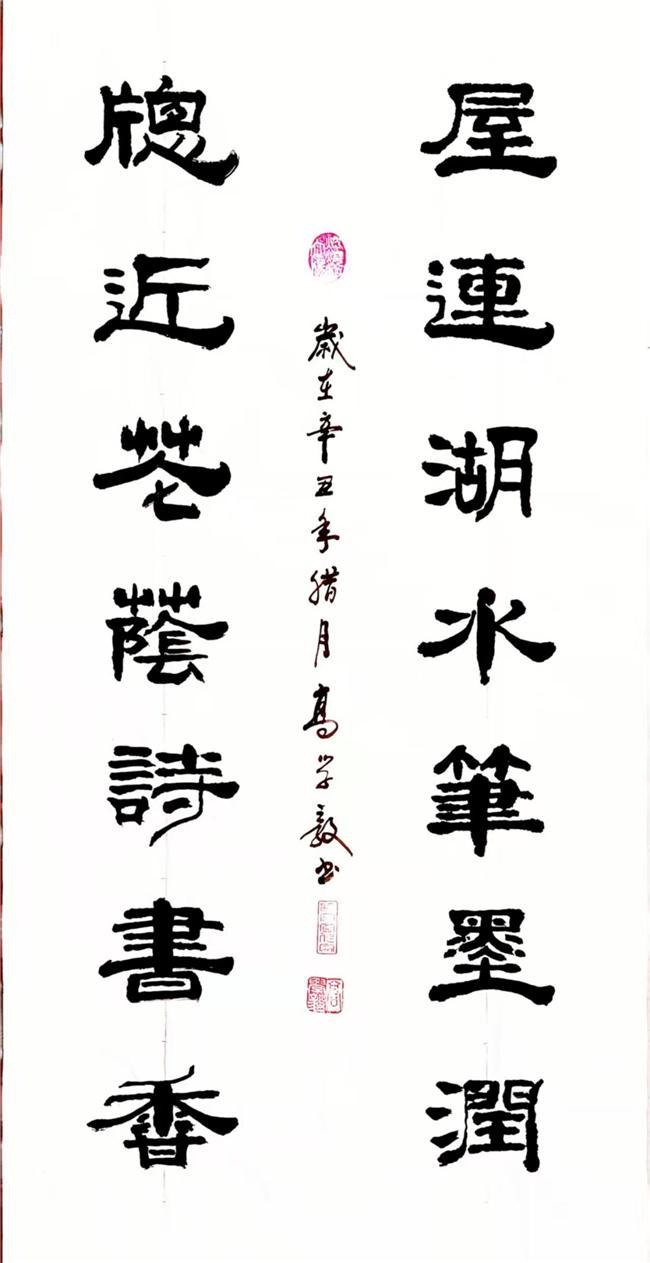 屋連湖水筆墨潤
牎近花蔭詩書香
歲在辛丑年腊月高学毅书